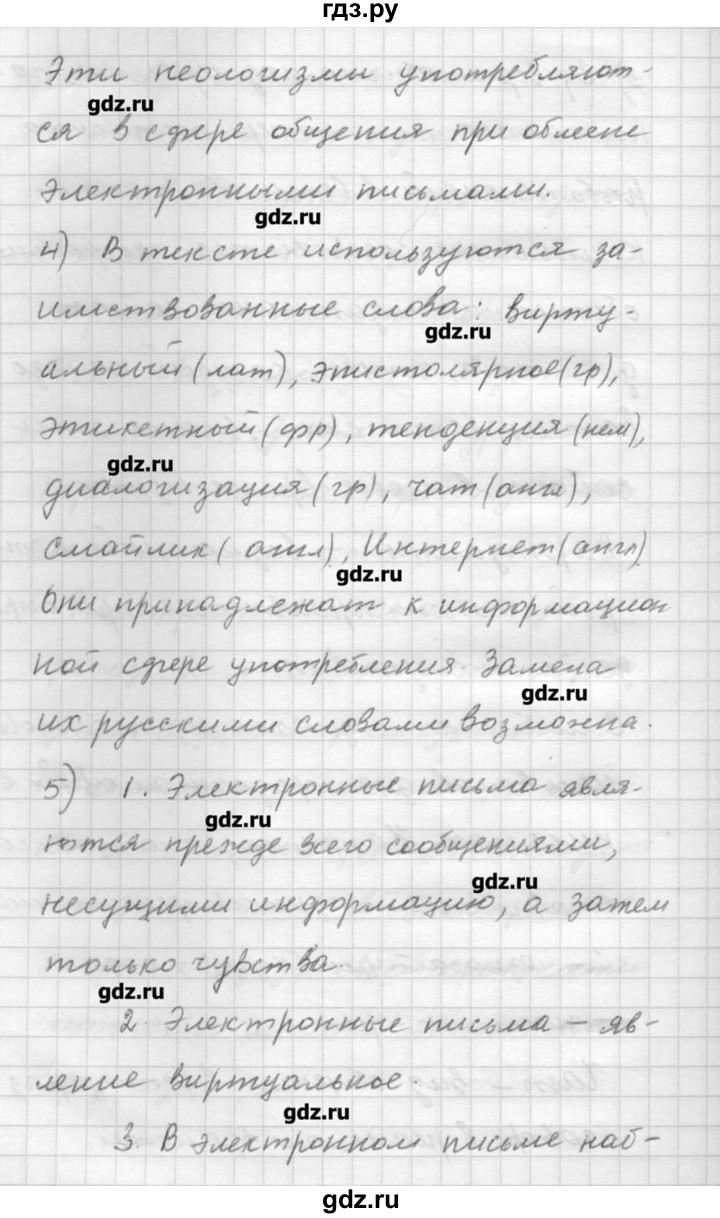 гдз.ру
Эти неологизмы употребляют-
gdz.ru
ся в сфере общения при обмене
электронными письмами.
gdz.ru
4) В тексте используются за-
имствованные слова: вирту-
gdz.ru
альный (лат), эпистолярное (гр),
этикетный (фр), тенденция (нем),
gdz.ru
диалогизация (гр), чат (англ),
смайлик (англ), Интернет (англ)
gdz.ru
Они принадлежат к информацион
ной сфере употребления. Замена
gdz.ru
их русскими словами возможна.
5) 1. Электронные письма явля-
gdz.ru
ются прежде всего сообщениями,
gdz.ru
несущими информацию, а затем
только чувства.
gdz.ru
2. Электронные письма – яв-
ление виртуальное.
gdz.ru
3. В электронном письме наб-
gdz.ru